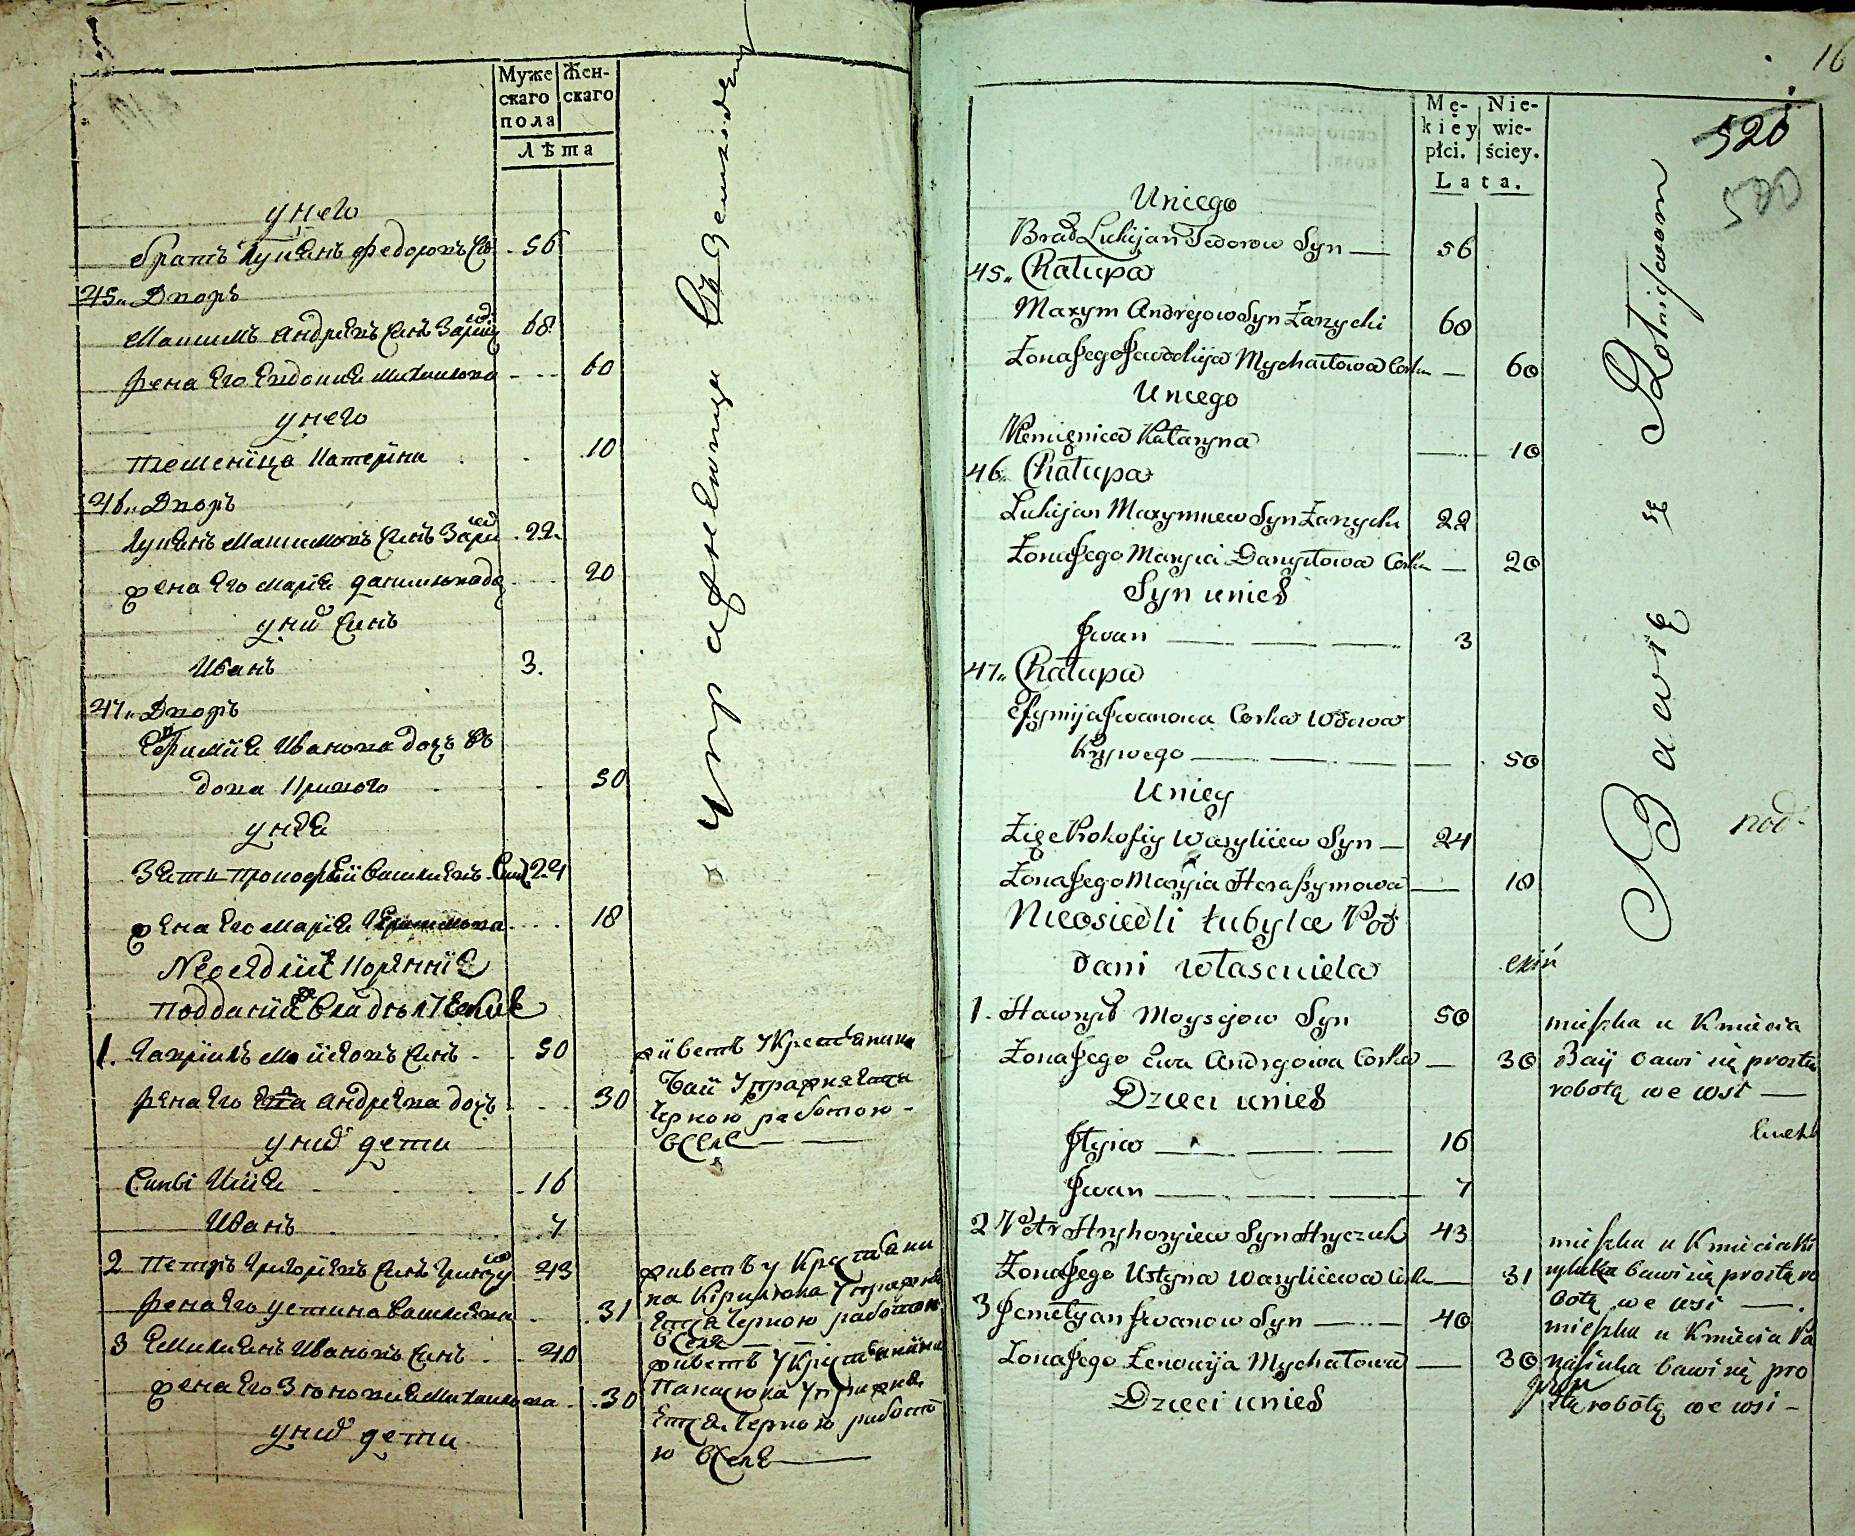 Муже
скаго
пола
Жен-
скаго
Лѣта
у него
братъ Лукянъ Федоровъ Сы. 56
45. Дворъ
Максимъ Андреевъ Синъ Зариц 68
жена Его Евдокия Михаилова 60
у него
племеница Катерина 10
46. Дворъ
Лукянъ Максимовъ Синъ Зари 22
жена Его Мария Данилова до 20
у них Синъ
Иванъ 3.
47. Дворъ
Ефимия Иванова доч в
дова Кривого 50
у нея
Зять Прокофей Василевъ Син 24
жена Его Мария Герасимова 18
Неоседлии Коренние
Подданий Владельческие
1. Гаврилъ Мойсеовъ Синъ 50
жена Его Ева Андреева доч 30
у них дети
Илия 16
Иванъ 7
2 Петръ Григоревъ Синъ Грицу 43
жена Его Устина Василева 31
3 Емилиянъ Ивановъ Синъ 40
жена Его Зеновия Михаилова 30
у них дети
упражняется в земледели
живетъ у крестянина
Бай упражняется
черною работою
в селе
живетъ у крестяни
на Кирилюка упражня
ется черною работою
в селе
живетъ у крестянина
Панасюка упражня
ется черною работо
ю в селе
16
520
520
Mę-
kiey
płci.
Nie-
wie-
ściey.
Lata.
Uniego
Brat Lukijan Fedorow Syn — 56
45. Chałupa
Maxym Andrejow Syn Zarzycki 68
Żona Jego Jewdokija Mychaiłowa Corka — 60
Uniego
Plemienica Kataryna 10
46. Chałupa
Lukijan Maxymiew Syn Zarzycki 22
Żona Jego Maryia Danyłowa Corka — 20
Syn unich
Jwan 3
47. Chałupa
Efymija Jwanowa Corka Wdowa
Krywego 50
Uniey
Zięc Prokofiy Wasyliiew Syn — 24
Żona Jego Maryia Heraszymowa 18
Nieosiedli tubylce Pod
dani własciciela
1. Hawryło Moysyiow Syn 50
Żona Jego Ewa Andryowa Corka — 30
Dzieci unich
Jlyia 16
Jwan 7
2 Petr Hryhoryiew Syn Hryczuk 43
Żona Jego Ustyna Wasyliiewa Corka — 31
3 Jemełyan Jwanow Syn 40
Żona Jego Zenowija Mychałowa — 30
Dzieci unich
Bawią się Rolnictwem
mieszka u Kmiecia
Baij bawi się prostą
robotą we wsi —
mieszka u Kmiecia Ki
ryluka bawi się prostą ro
botą we wsi —.
mieszka u Kmiecia Pa
nasiuka bawi się pro
stą robotą we wsi —